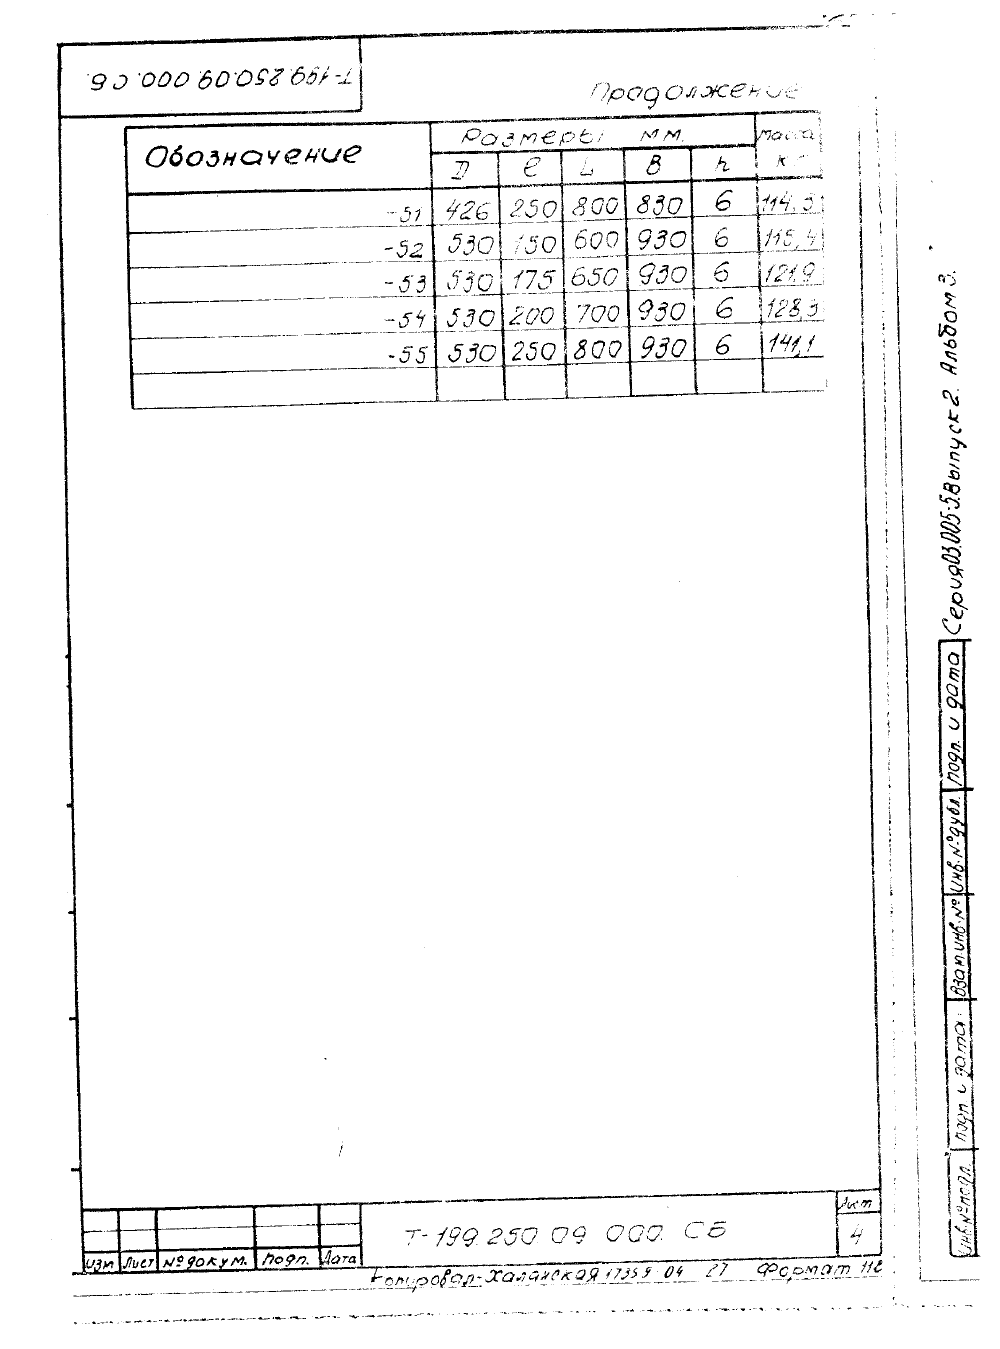 Т-199.250.09.000.СБ
Продолжение
Обозначение Размеры мм. Масса
D ℓ L В h к
-51 426 250 800 830 6 114,3
-52 530 150 600 930 6 115,4
-53 530 175 650 930 6 121,9
-54 530 200 700 930 6 128,3
-55 530 250 800 930 6 141,1
Серия 03.005-5. Выпуск 2. Альбом 3.
Инв.№подл. подп и дата Взам.инв.№ Инв.№дубл. подп. и дата
Лист
Т-199.250 09 000. СБ 4
изм Лист №докум. Подп. Дата
Копировал-Халанская 17359 04 27 Формат 11